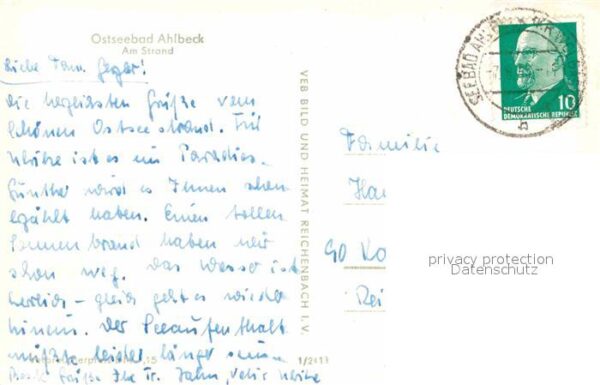 Ostseebad Ahlbeck
Am Strand
Liebe Fam. Geger!
die herzlichsten Grüße vom
schönen Ostseestrand. Für
Ulrike ist es ein Paradies.
Günther wird es Ihnen schon
erzählt haben. Einen tollen
Sonnenbrand haben wir
schon weg. Das Wasser ist
herrlich – gleich geht es wieder
hinein. Der Seeaufenthalt
müßte leider länger sein
Beste Grüße Ihre Fr. Jahn, Ulrike
VEB BILD UND HEIMAT REICHENBACH I. V.
15
1/2413
SEEBAD
10
DEUTSCHE
DEMOKRATISCHE REPUBLIK
Familie
90
privacy protection
Datenschutz